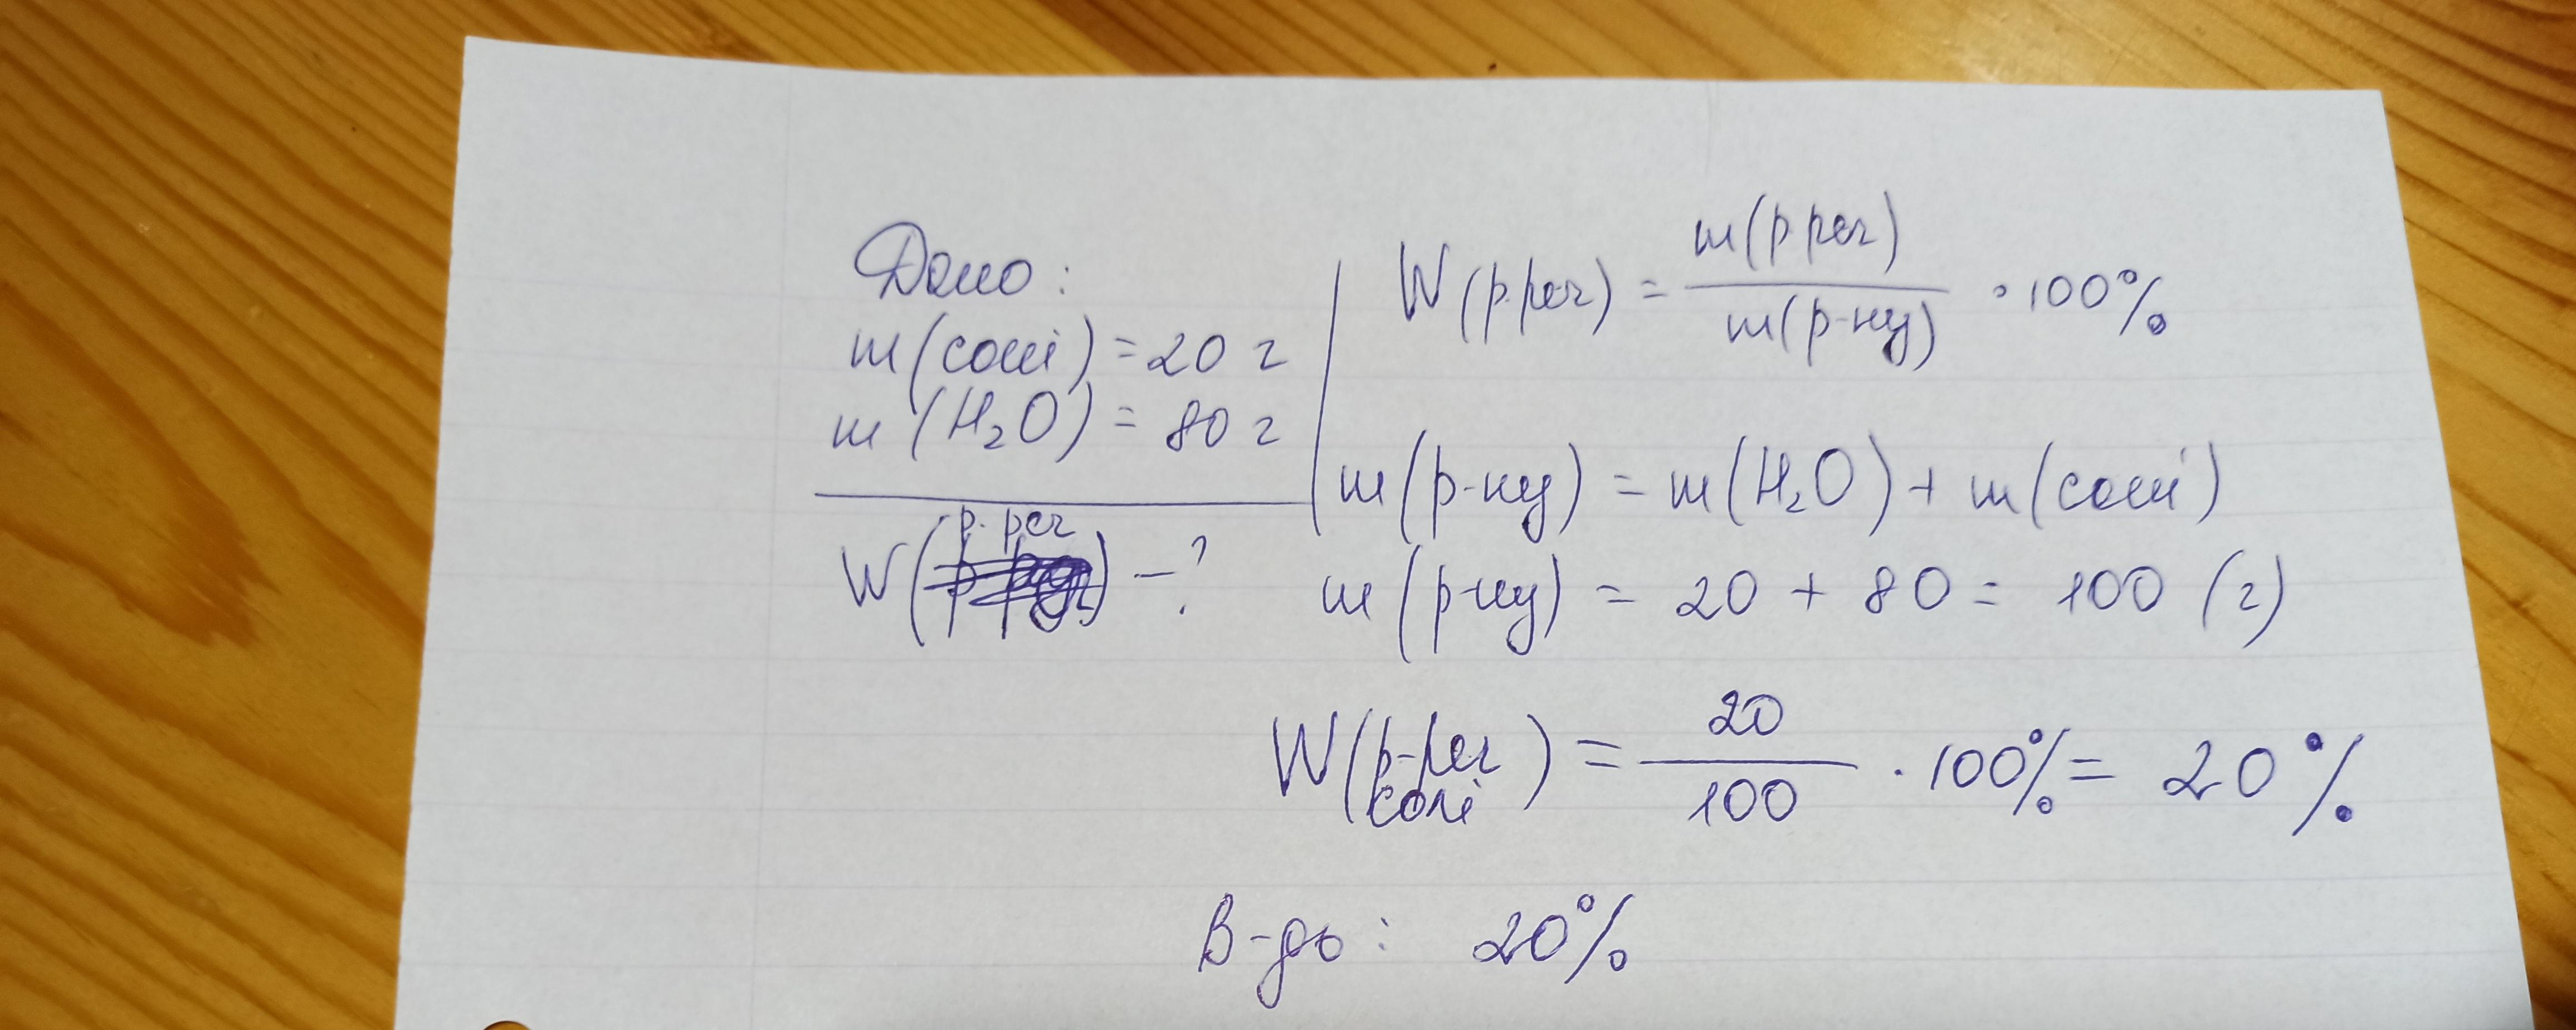 Дано:
m(солі) = 20 г
m(H₂O) = 80 г
W(р.реч) – ?
W(р.реч) = m(р.реч) / m(р-ну) · 100%
m(р-ну) = m(H₂O) + m(солі)
m(р-ну) = 20 + 80 = 100 (г)
W(р-реч солі) = 20 / 100 · 100% = 20%
В-дь: 20%